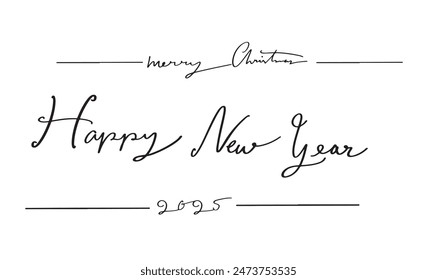 merry Christmas
Happy New Year
2025
shutterstock.com · 2473753535